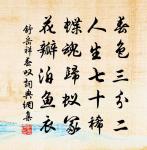 春色三分二
人生七十稀
蝶魂歸蟻冢
花瓣泊魚衣
舒岳祥春叹詞典網集